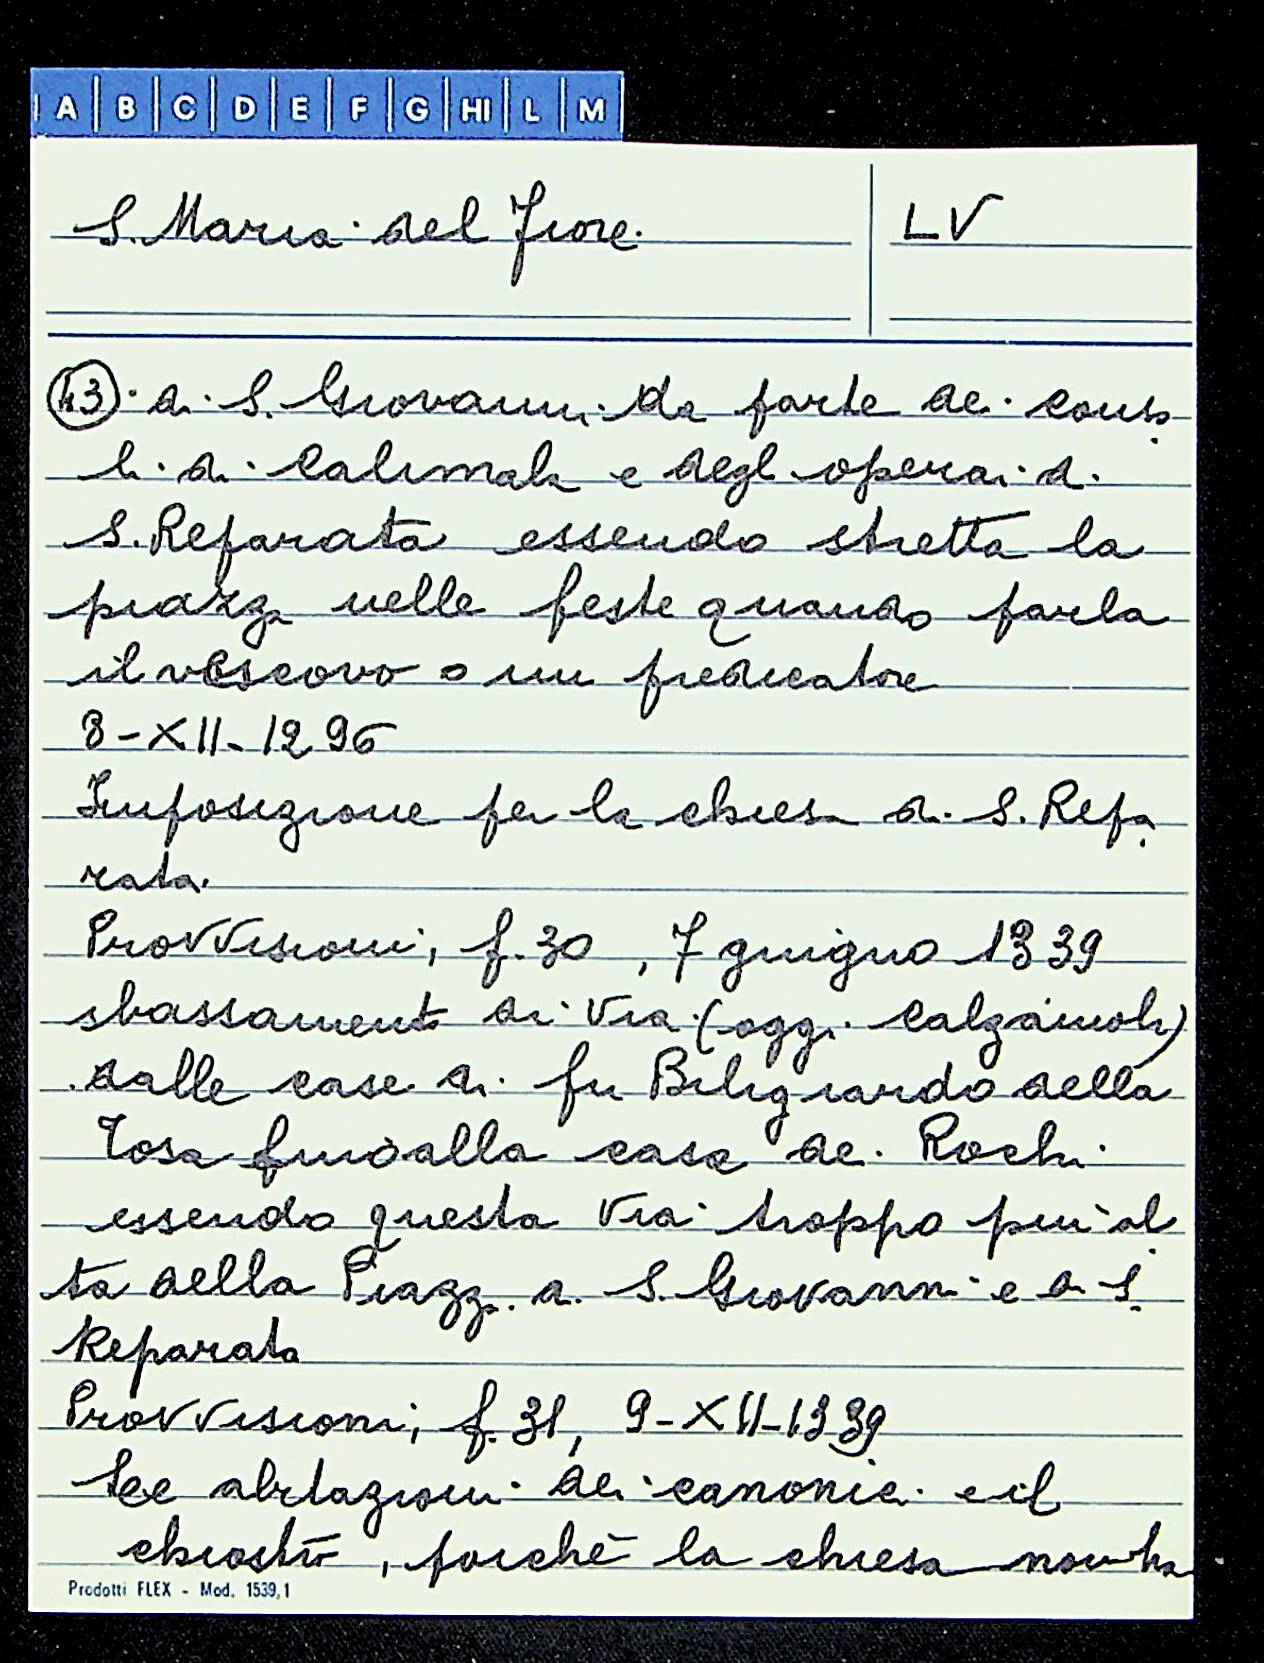 A B C D E F G HI L M
S. Maria del Fiore. LV
43 di S. Giovanni da parte dei conso
li di Calimala e degli operai di
S. Reparata essendo stretta la
piazza nelle feste quando parla
il vescovo o un predicatore
8-XII-1296
Imposizione per la chiesa di S. Repa
rata.
Provvisioni, f. 30, 7 giugno 1339
sbassamento di via (oggi Calzaiuoli)
dalle case di fu Biligiardo della
Tosa fino alla casa dei Rochi
essendo questa via troppo più al
ta della Piazza di S. Giovanni e di S.
Reparata
Provvisioni, f. 31, 9-XII-1339
Le abitazioni dei canonici e il
chiostro, poichè la chiesa non ha
Prodotti FLEX - Mod. 1539,1